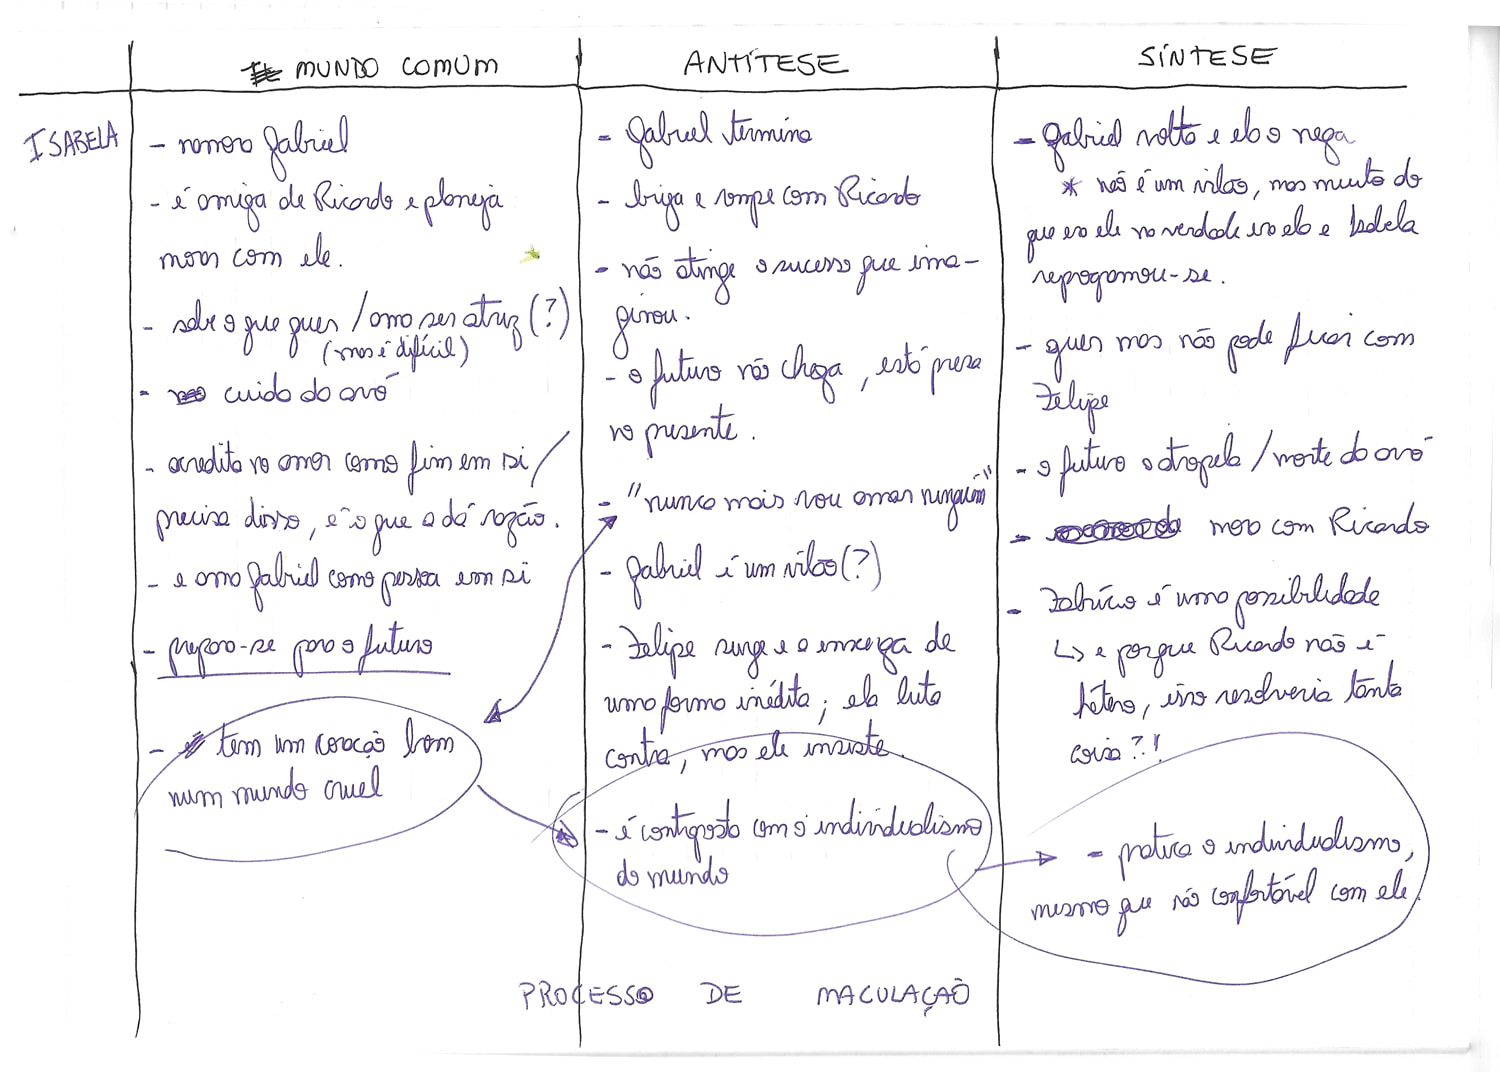 MUNDO COMUM
ANTÍTESE
SÍNTESE
ISABELA
- namora Gabriel
- é amiga de Ricardo e planeja
morar com ele.
- sabe o que quer / ama ser atriz (?)
(mas é difícil)
- cuida da avó
- acredita no amor como fim em si /
precisa disso, é o que a dá razão.
- e ama Gabriel como pessoa em si
- prepara-se para o futuro
- tem um coração bom
num mundo cruel
- Gabriel termina
- briga e rompe com Ricardo
- não atinge o sucesso que ima-
ginou.
- o futuro não chega, está presa
no presente.
- "nunca mais vou amar ninguém"
- Gabriel é um vilão (?)
- Felipe surge e a enxerga de
uma forma inédita; ela luta
contra, mas ele insiste.
- é contraposta com o individualismo
do mundo
- Gabriel volta e ela o nega
* não é um vilão, mas muito do
que era ele na verdade era ela e Isabela
repogamou-se.
- quer mas não pode ficar com
Felipe
- o futuro a atropela / morte da avó
- mora com Ricardo
- Fabrício é uma possibilidade
↳ e porque Ricardo não é
hétero, isso resolveria tanta
coisa?!
- pratica o individualismo,
mesmo que não confortável com ele.
PROCESSO DE MACULAÇÃO